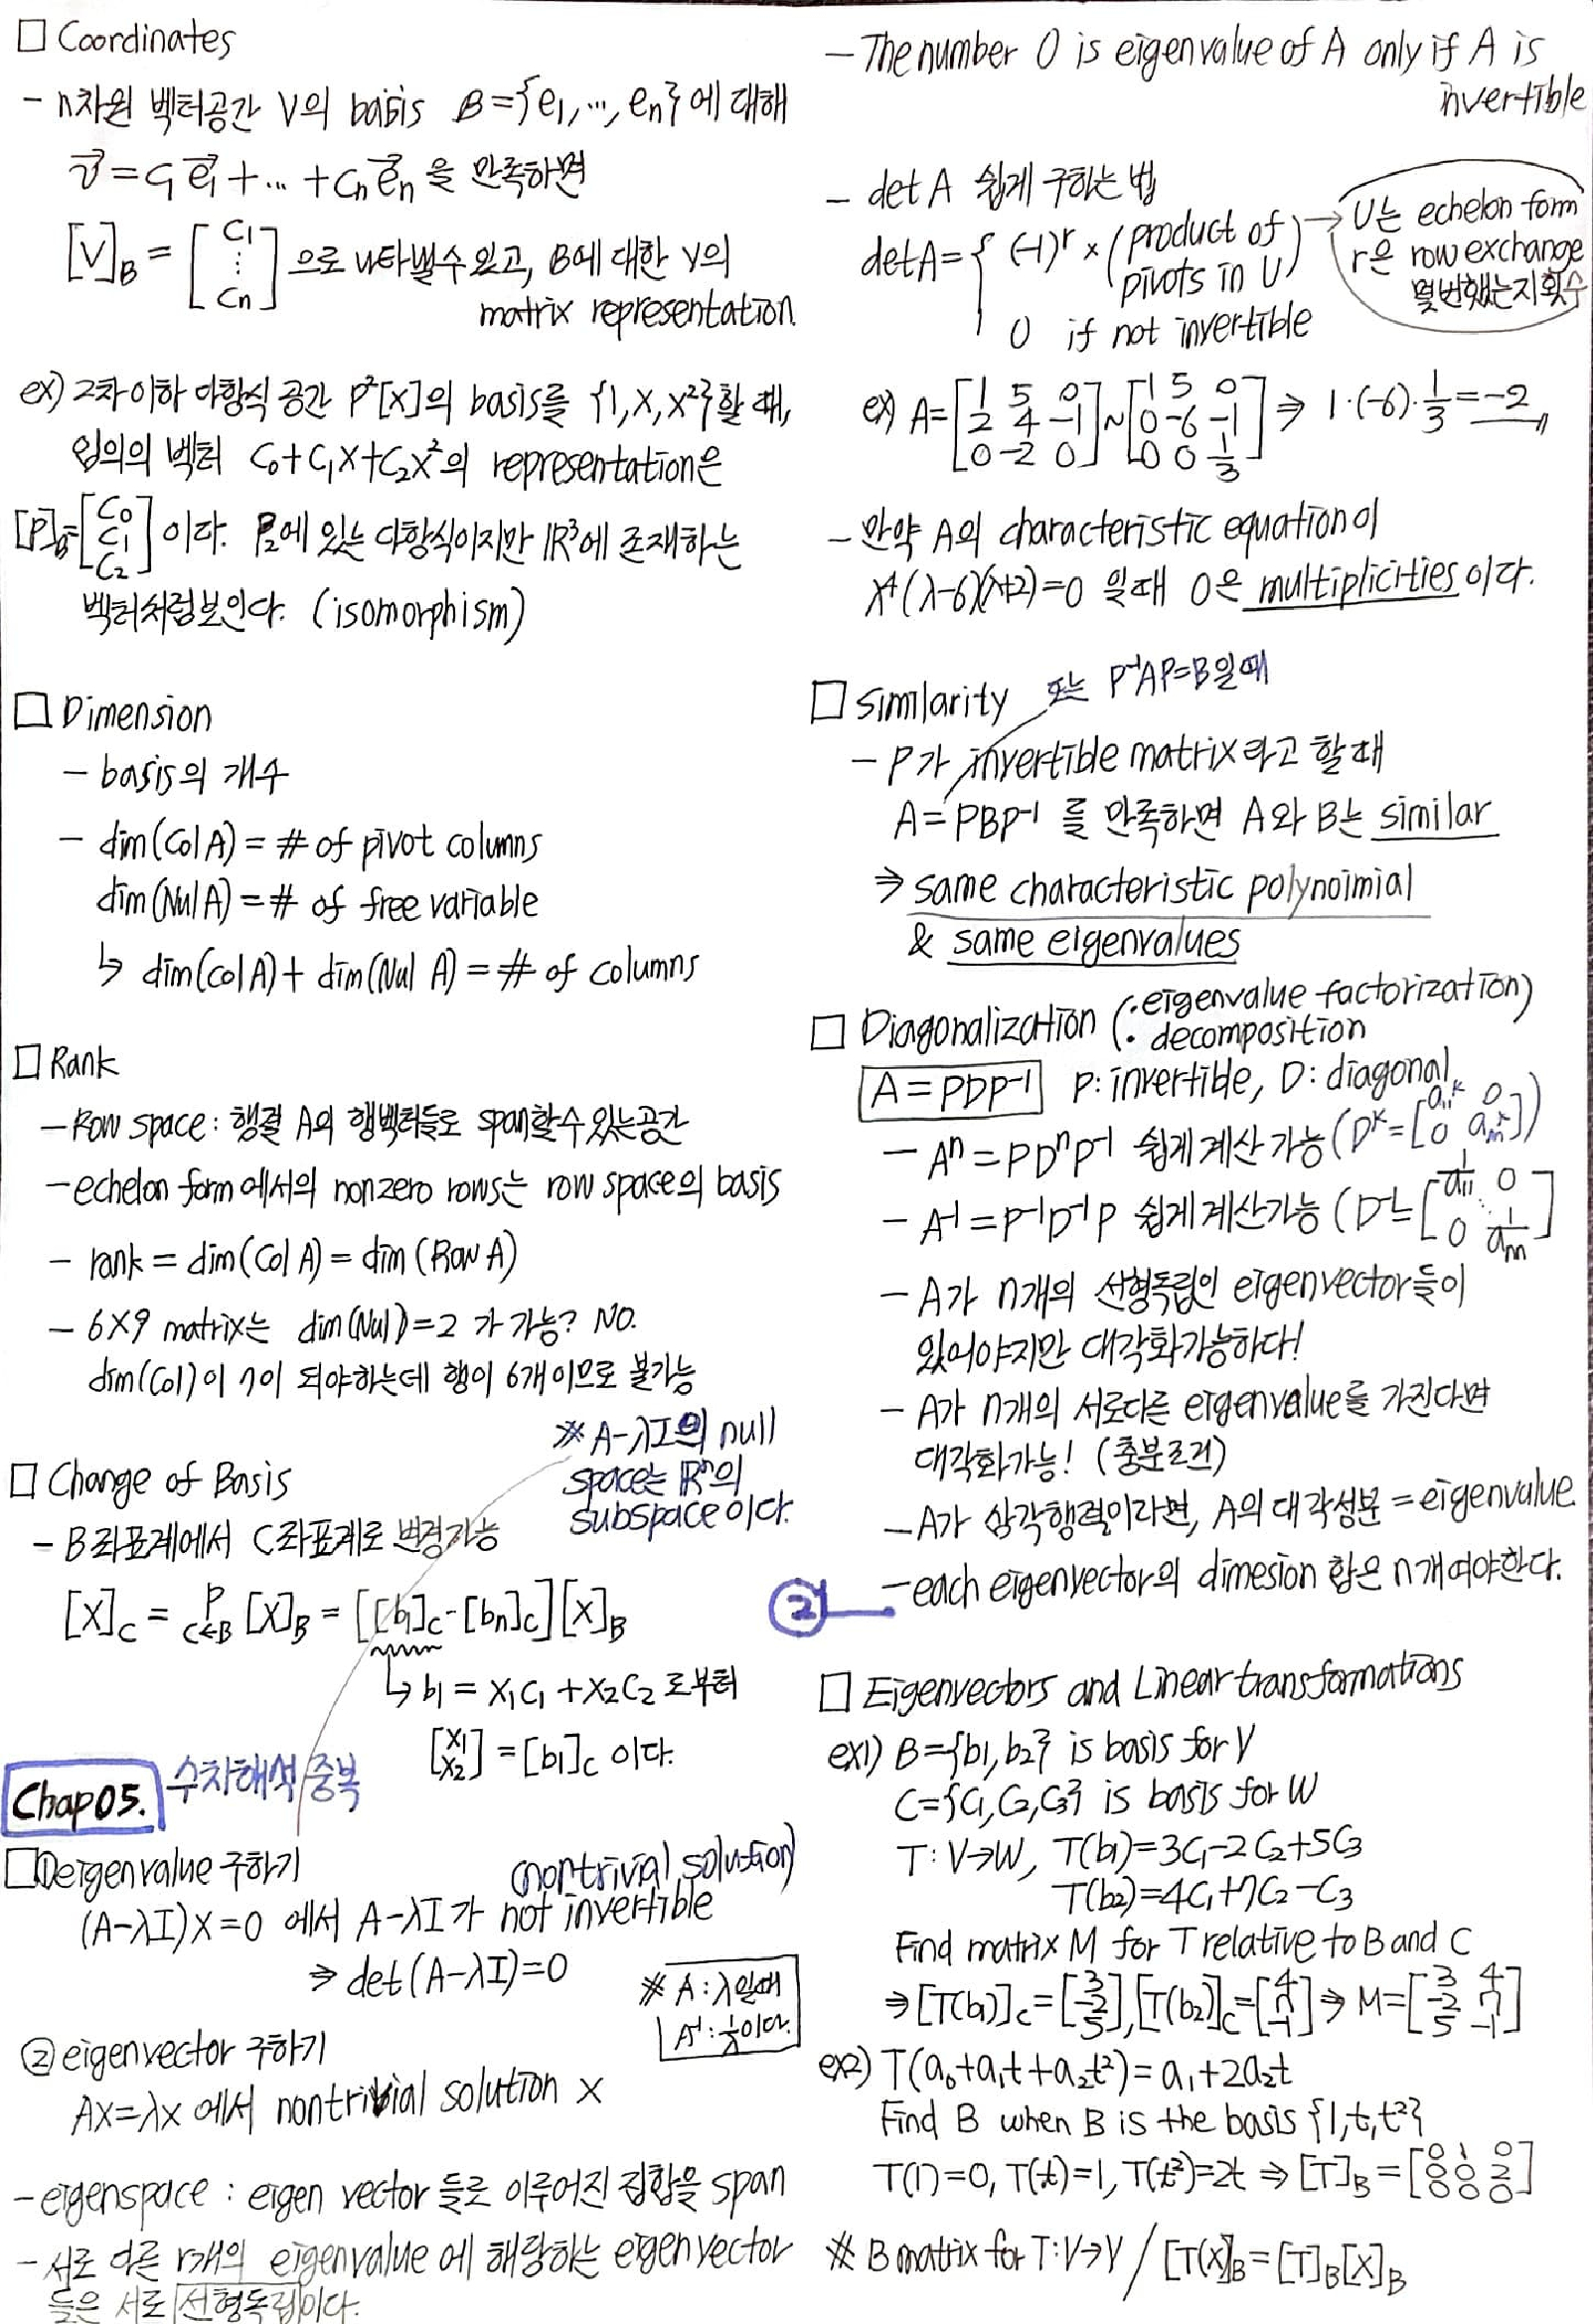 □ Coordinates
- n차원 벡터공간 V의 basis B={e1,…,en}에 대해
v⃗=c1e⃗1+…+cne⃗n을 만족하면
[V]B = [c1 ⋮ cn] 으로 나타낼수 있고, B에 대한 V의
matrix representation.
ex) 2차이하 다항식 공간 P²[x]의 basis를 {1,x,x²}할 때,
임의의 벡터 c0+c1x+c2x²의 representation은
[P]B=[c0 c1 c2] 이다. P2에 있는 다항식이지만 ℝ³에 존재하는
벡터처럼보인다. (isomorphism)
□ Dimension
- basis의 개수
- dim(Col A) = # of pivot columns
dim(Nul A) = # of free variable
↳ dim(Col A) + dim(Nul A) = # of columns
□ Rank
- Row space : 행렬 A의 행벡터들로 span할수 있는공간
- echelon form에서의 nonzero rows는 row space의 basis
- rank = dim(Col A) = dim(Row A)
- 6×9 matrix는 dim(Nul)=2 가 가능? NO.
dim(Col)이 7이 되야하는데 행이 6개이므로 불가능
※ A-λI의 null
space는 ℝⁿ의
subspace이다.
□ Change of Basis
- B좌표계에서 C좌표계로 변경가능
[X]C = P C←B [X]B = [[b1]C - [bn]C][X]B
↳ b1 = x1c1 + x2c2 로부터
[x1 x2] = [b1]C 이다.
Chap 05. 수치해석 중복
□①eigenvalue 구하기
(nontrivial solution)
(A-λI)X=0 에서 A-λI가 not invertible
⇒ det(A-λI)=0
※ A : λ일때
A⁻¹ : 1/λ이다.
② eigenvector 구하기
AX=λX 에서 nontrivial solution X
- eigenspace : eigen vector 들로 이루어진 집합을 span
- 서로 다른 r개의 eigenvalue에 해당하는 eigenvector
들은 서로 선형독립이다.
- The number 0 is eigenvalue of A only if A is
invertible
- det A 쉽게 구하는 법
det A = { (-1)^r × (product of pivots in U) → U는 echelon form
r은 row exchange
몇번했는지 횟수
0 if not invertible
ex) A=[1 5 0 2 4 -1 0 -2 0] ~ [1 5 0 0 -6 -1 0 0 1/3] ⇒ 1·(-6)·1/3=-2
- 만약 A의 characteristic equation이
λ⁴(λ-6)(λ+2)=0 일때 0은 multiplicities이다.
□ Similarity 또는 P⁻¹AP=B일때
- P가 invertible matrix라고 할때
A=PBP⁻¹ 를 만족하면 A와 B는 similar
⇒ same characteristic polynoimial
& same eigenvalues
□ Diagonalization (· eigenvalue factorization)
· decomposition
A=PDP⁻¹ P: invertible, D: diagonal
- Aⁿ=PDⁿP⁻¹ 쉽게계산 가능(Dᵏ=[a11ᵏ 0 0 amᵏ])
- A⁻¹=P⁻¹D⁻¹P 쉽게계산가능 (D⁻¹=[1/a11 0 0 1/am]
- A가 n개의 선형독립인 eigenvector들이
있어야지만 대각화가능하다!
- A가 n개의 서로다른 eigenvalue를 가진다면
대각화가능! (충분조건)
- A가 삼각행렬이라면, A의 대각성분 = eigenvalue.
② - each eigenvector의 dimesion 합은 n개여야한다.
□ Eigenvectors and Linear transformations
ex1) B={b1,b2} is basis for V
C={c1,c2,c3} is basis for W
T: V→W, T(b1)=3c1-2c2+5c3
T(b2)=4c1+7c2-c3
Find matrix M for T relative to B and C
⇒ [T(b1)]C=[3 -2 5], [T(b2)]C=[4 7 -1] ⇒ M=[3 4 -2 7 5 -1]
ex2) T(a0+a1t+a2t²)=a1+2a2t
Find B when B is the basis {1,t,t²}
T(1)=0, T(t)=1, T(t²)=2t ⇒ [T]B=[0 1 0 0 0 2 0 0 0]
※ B matrix for T:V→V / [T(X)]B=[T]B[X]B